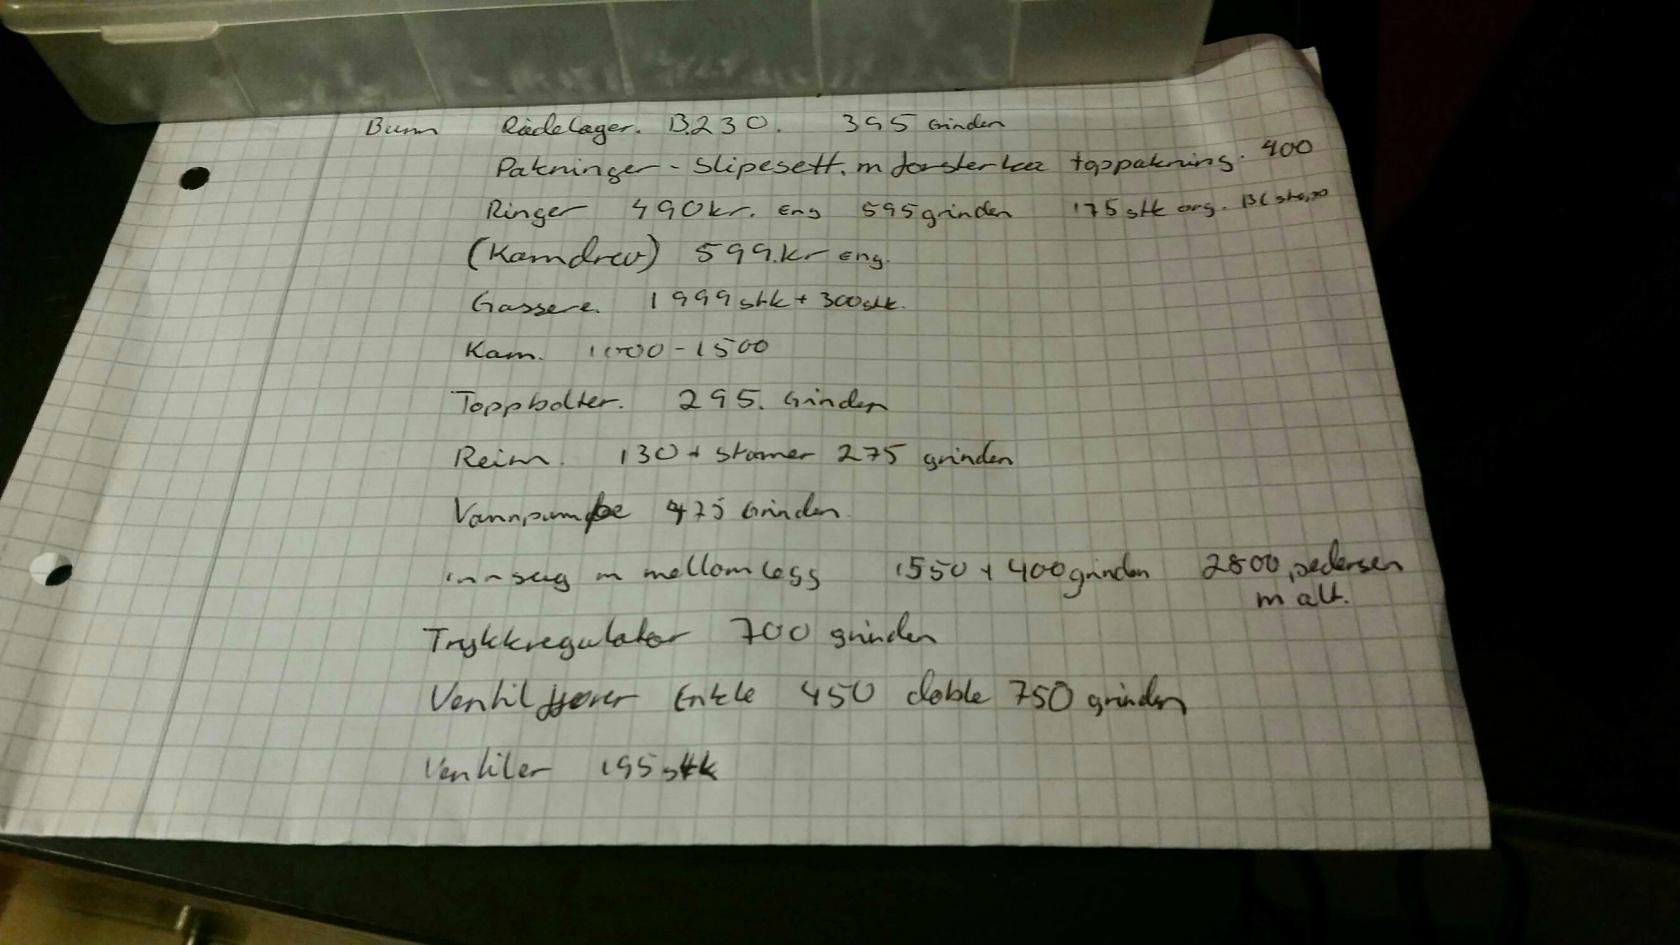 Bunn Rådelager. B230. 395 Grinden
Pakninger - Slipesett. m forsterket toppakning. 400
Ringer 490kr. Eng 595 grinden 175 stk org.
(Kamdrev) 599.kr Eng.
Gassere. 1999 stk + 300 stk.
Kam. 1000-1500
Toppbolter. 295. Grinden
Reim. 130 + stramer 275 grinden
Vannpumpe 475 Grinden
innsug m mellomlegg 1550 + 400 grinden 2800, pedersen
m alt.
Trykkregulator 700 grinden
Ventilfjærer Enkle 450 doble 750 grinden
Ventiler 195 stk